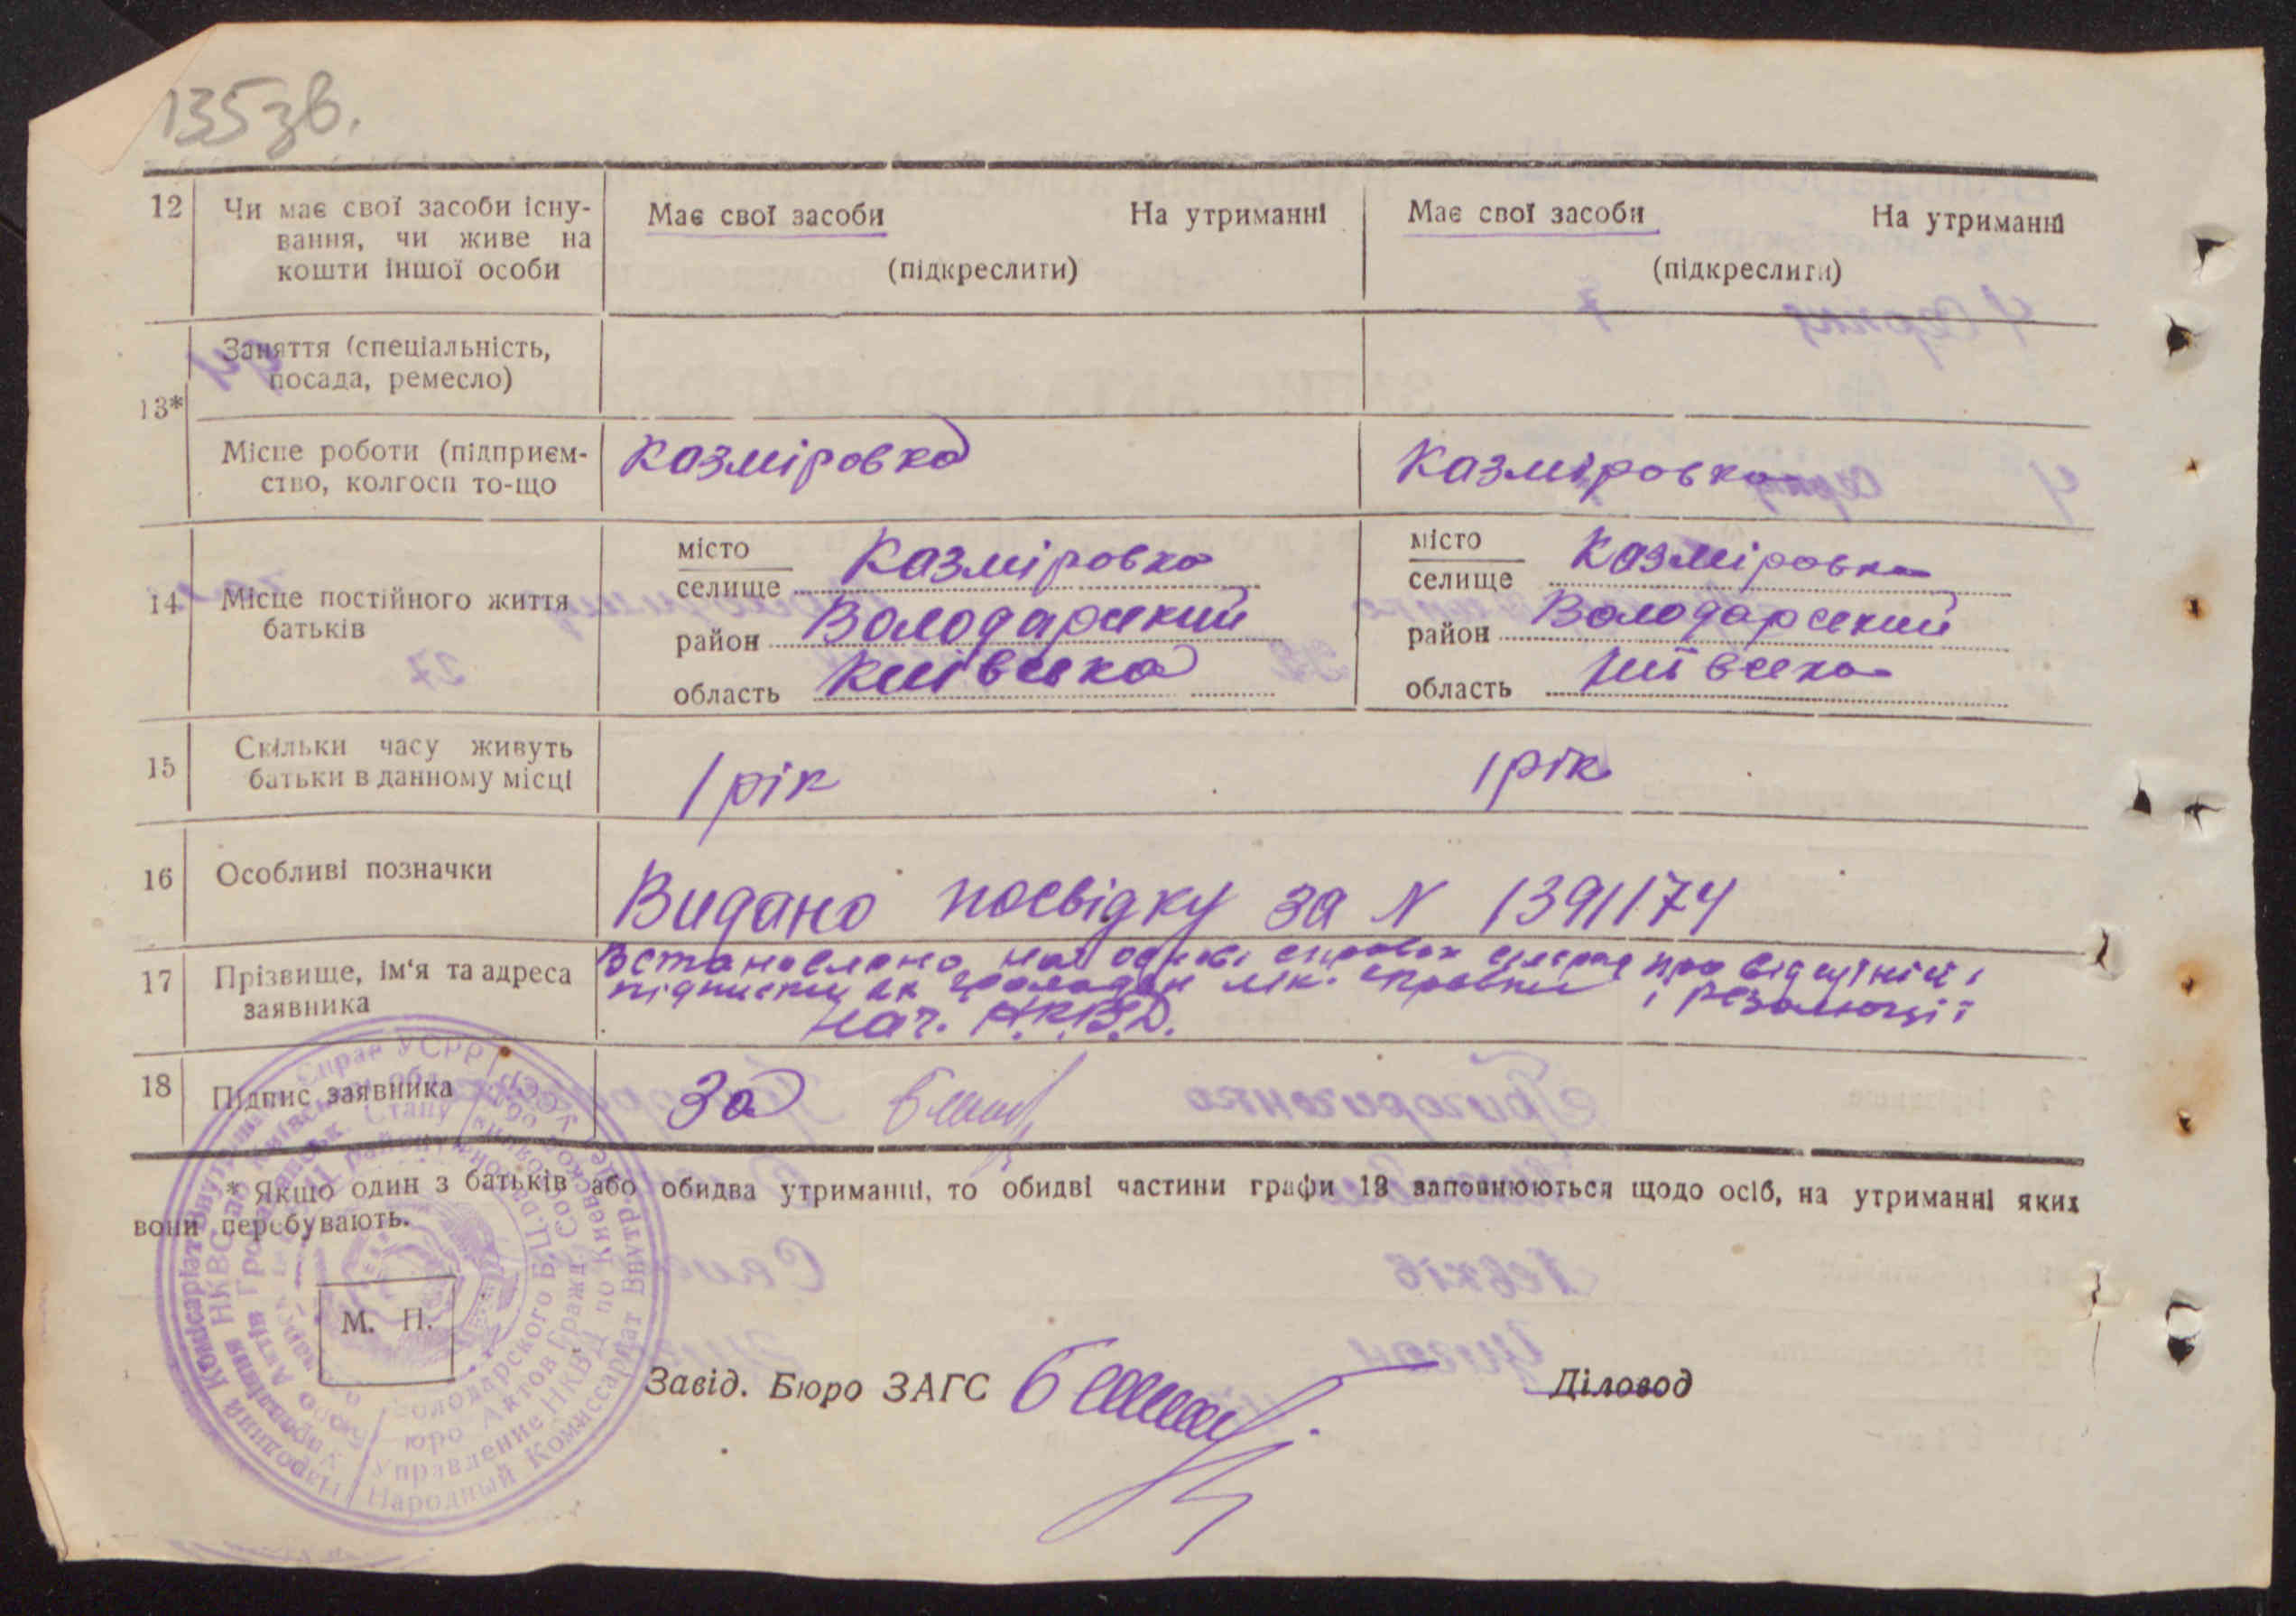 135 зв.
12 Чи має свої засоби існу-
вання, чи живе на
кошти іншої особи
Має свої засоби На утриманні
(підкреслити)
Має свої засоби На утриманні
(підкреслити)
13*
Заняття (спеціальність,
посада, ремесло)
Місце роботи (підприєм-
ство, колгосп то-що
Казміровка
Казміровка
14 Місце постійного життя
батьків
місто
селище Казміровка
район Володарський
область Київська
місто
селище Казміровка
район Володарський
область Київська
15 Скільки часу живуть
батьки в данному місці
1 рік
1 рік
16 Особливі позначки
Видано посвідку за N 1391174
17 Прізвище, ім‘я та адреса
заявника
Встановлено на справок про
підписки як справки і резолюції
нач. Н.К.В.Д.
18 Підпис заявника
За
* Якщо один з батьків або обидва утриманці, то обидві частини графи 13 заповнюються щодо осіб, на утриманні яких
вони перебувають.
М. П.
Завід. Бюро ЗАГС
Діловод